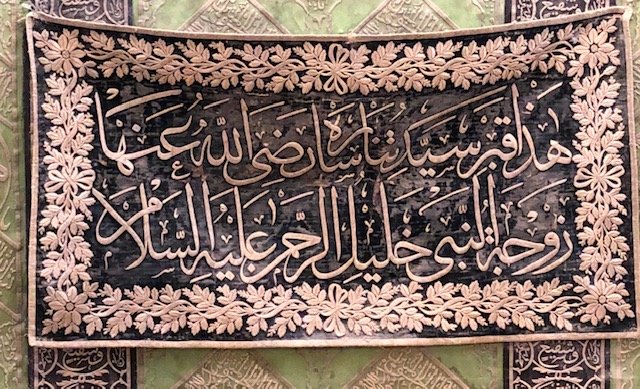 هذا قبر سيدتنا سارة رضى الله عنها
زوجة النبى خليل الرحمن عليه السلام